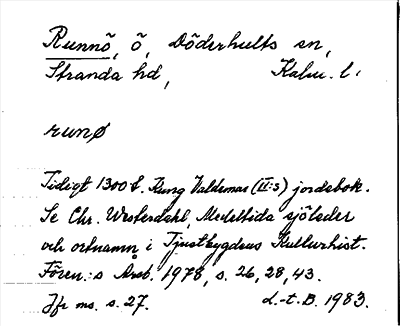 Runnö, ö, Döderhults sn,
Stranda hd, Kalm. l.
runø
Tidigt 1300 t. Kung Valdemar (II:s) jordebok.
Se Chr. Westerdahl, Medeltida sjöleder
och ortnamn i Tjustbygdens Kulturhist.
Fören:s Årsb. 1978, s. 26, 28, 43.
Jfr ms. s. 27. L.-t. B. 1983.